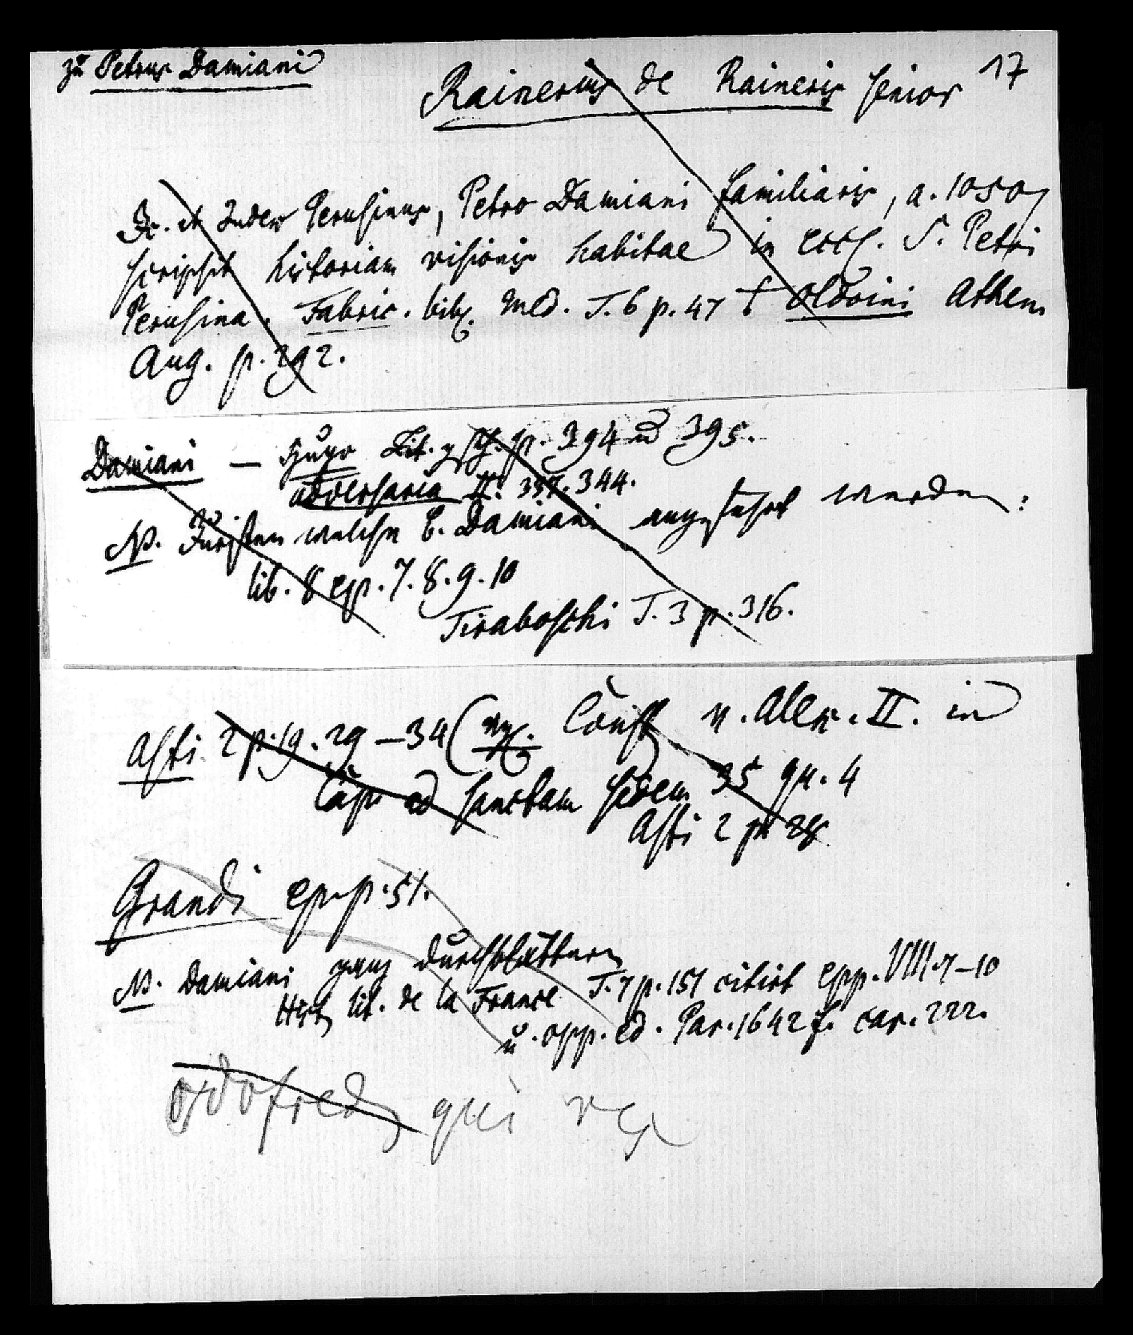 zu Petrus Damiani
Rainerius de Raineris senior 17
Ic. et Index Perusinus, Petro Damiani familiaris, a. 1050
scripsit historiam visionis habitae in eccl. S. Petri
Perusina. Fabric. bibl. med. T. 6 p. 47 Oldoini Athen.
Aug. p. 292.
Damiani — Hugo Lit. p. 394 ud 395.
adversaria II. 344.
NB. Juristen welche b. Damiani angeführt werden:
lib. 8 ep. 7. 8. 9. 10
Tiraboschi T. 3 p. 316.
Asti 2 p. 19. 29 – 34 ( Const v. Alex. II. in
Cap. ad sanctam sedem 35 qu. 4
Asti 2 p. 28
Grandi ep. p. 51.
NB. Damiani ganz durchblättern
Hist. lit. de la France T. 7 p. 151 citirt epp. VIII. 7–10
u. opp. ed. Par. 1642 f. cap. 222.
Odofred. qui